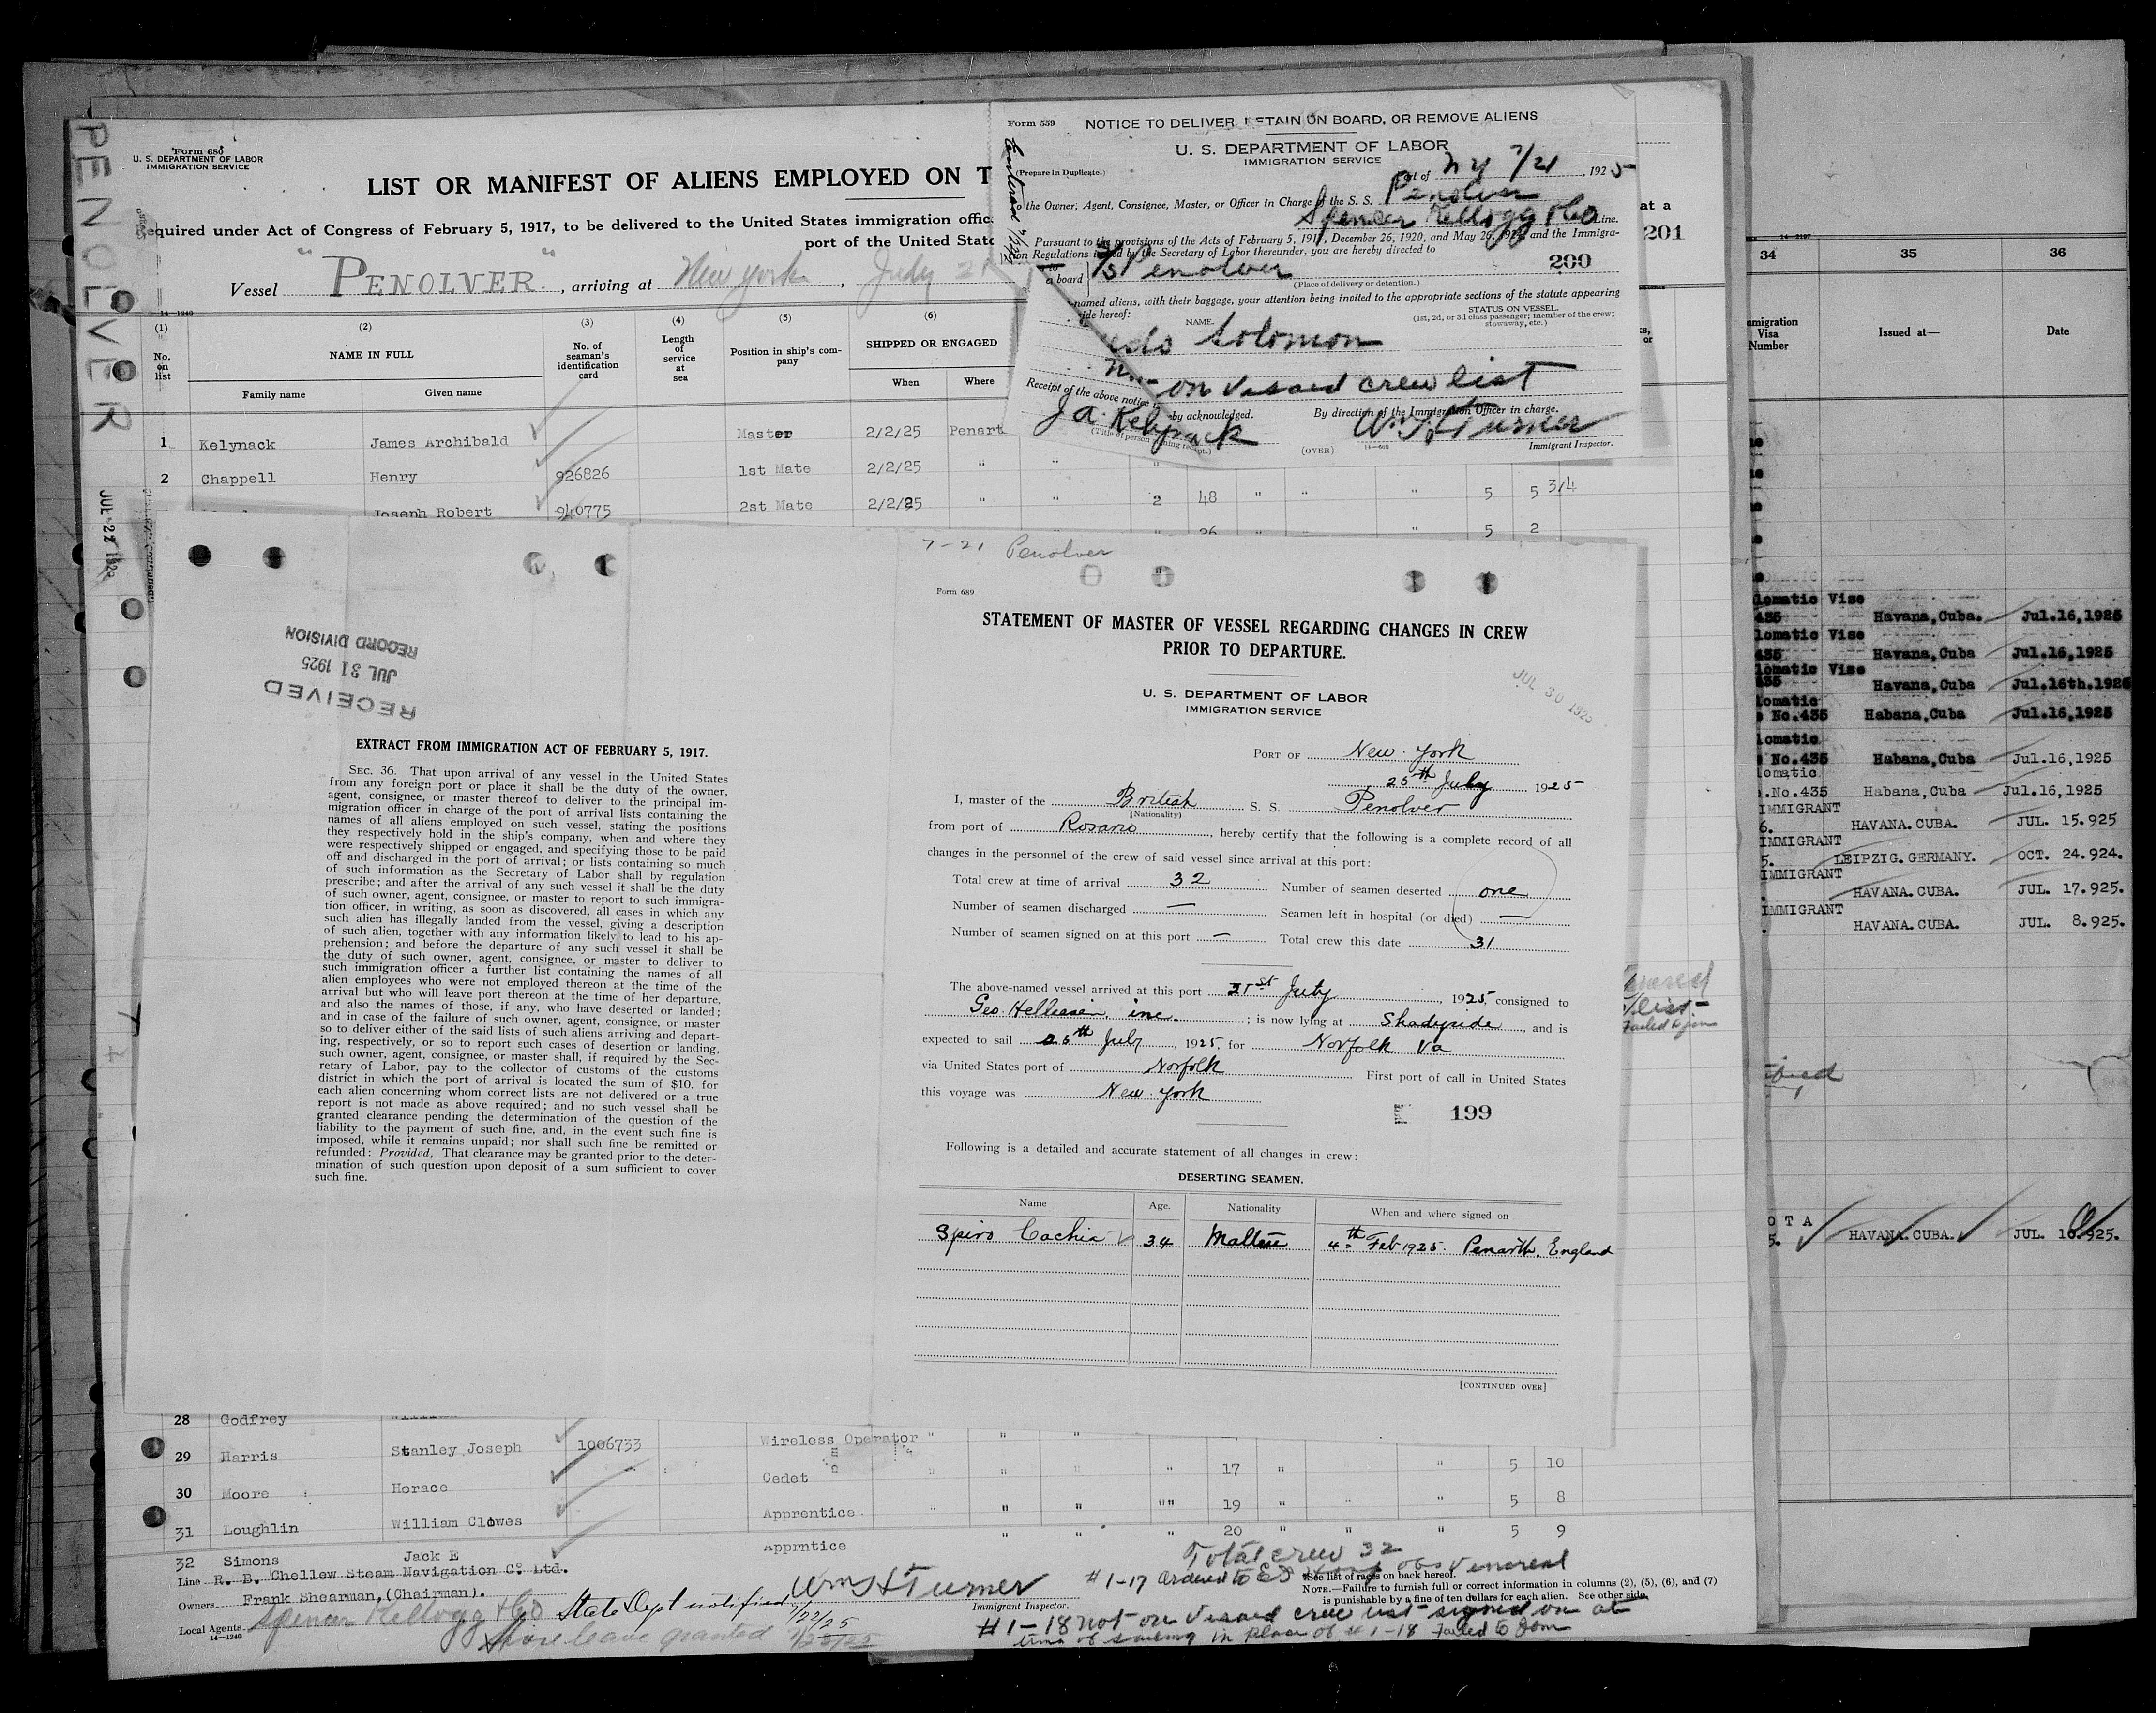 PENOLVER
Form 680
U. S. DEPARTMENT OF LABOR
IMMIGRATION SERVICE
LIST OR MANIFEST OF ALIENS EMPLOYED ON T
equired under Act of Congress of February 5, 1917, to be delivered to the United States immigration offic
port of the United Stat
Vessel "PENOLVER", arriving at New York, July 21
14—1240
(1) (2) (3) (4) (5) (6)
No. on list
NAME IN FULL
Family name Given name
No. of seaman's identification card
Length of service at sea
Position in ship's company
SHIPPED OR ENGAGED
When Where
1 Kelynack James Archibald Master 2/2/25 Penart
2 Chappell Henry 926826 1st Mate 2/2/25 " " "
Joseph Robert 940775 2st Mate 2/2/25 " " 2 48 " " " 5 5 3/4
26 " " " 5 2
JUL 22 192
Form 559
NOTICE TO DELIVER, RETAIN ON BOARD, OR REMOVE ALIENS
U. S. DEPARTMENT OF LABOR
IMMIGRATION SERVICE
(Prepare in Duplicate.)
Port of N Y 7/21, 1925
o the Owner, Agent, Consignee, Master, or Officer in Charge of the S. S. Penolver
Spencer Kellogg & Co Line.
Pursuant to the provisions of the Acts of February 5, 1917, December 26, 1920, and May 26, 1924, and the Immigra-
on Regulations issued by the Secretary of Labor thereunder, you are hereby directed to
200
board S/S Penolver
(Place of delivery or detention.)
named aliens, with their baggage, your attention being invited to the appropriate sections of the statute appearing
ide hereof:
NAME. STATUS ON VESSEL.
(1st, 2d, or 3d class passenger; member of the crew; stowaway, etc.)
Solomon
on Vessel crew list
Receipt of the above notice by acknowledged.
By direction of the Immigration Officer in charge.
J A Kelynack
W. H. Turner
(OVER) 14—600 Immigrant Inspector.
at a
201
14—2197
34 35 36
mmigration Visa Number Issued at— Date
lomatic Vise
435 Havana, Cuba. Jul.16,1925
lomatic Vise
435 Havana, Cuba Jul.16,1925
lomatic Vise
435 Havana, Cuba Jul.16th.1925
lomatic
No.435 Habana, Cuba Jul.16,1925
lomatic
No.435 Habana, Cuba Jul.16,1925
lomatic
.No.435 Habana, Cuba Jul.16,1925
IMMIGRANT
6. HAVANA. CUBA. JUL. 15.925
IMMIGRANT
5. LEIPZIG. GERMANY. OCT. 24.924.
IMMIGRANT
HAVANA. CUBA. JUL. 17.925.
IMMIGRANT
HAVANA. CUBA. JUL. 8.925.
list
Failed to join
O T A
5. HAVANA. CUBA. JUL. 16.925.
RECEIVED
JUL 31 1925
RECORD DIVISION
EXTRACT FROM IMMIGRATION ACT OF FEBRUARY 5, 1917.
SEC. 36. That upon arrival of any vessel in the United States
from any foreign port or place it shall be the duty of the owner,
agent, consignee, or master thereof to deliver to the principal im-
migration officer in charge of the port of arrival lists containing the
names of all aliens employed on such vessel, stating the positions
they respectively hold in the ship's company, when and where they
were respectively shipped or engaged, and specifying those to be paid
off and discharged in the port of arrival; or lists containing so much
of such information as the Secretary of Labor shall by regulation
prescribe; and after the arrival of any such vessel it shall be the duty
of such owner, agent, consignee, or master to report to such immigra-
tion officer, in writing, as soon as discovered, all cases in which any
such alien has illegally landed from the vessel, giving a description
of such alien, together with any information likely to lead to his ap-
prehension; and before the departure of any such vessel it shall be
the duty of such owner, agent, consignee, or master to deliver to
such immigration officer a further list containing the names of all
alien employees who were not employed thereon at the time of the
arrival but who will leave port thereon at the time of her departure,
and also the names of those, if any, who have deserted or landed;
and in case of the failure of such owner, agent, consignee, or master
so to deliver either of the said lists of such aliens arriving and depart-
ing, respectively, or so to report such cases of desertion or landing,
such owner, agent, consignee, or master shall, if required by the Sec-
retary of Labor, pay to the collector of customs of the customs
district in which the port of arrival is located the sum of $10. for
each alien concerning whom correct lists are not delivered or a true
report is not made as above required; and no such vessel shall be
granted clearance pending the determination of the question of the
liability to the payment of such fine, and, in the event such fine is
imposed, while it remains unpaid; nor shall such fine be remitted or
refunded: Provided, That clearance may be granted prior to the deter-
mination of such question upon deposit of a sum sufficient to cover
such fine.
7-21 Penolver
Form 689
STATEMENT OF MASTER OF VESSEL REGARDING CHANGES IN CREW
PRIOR TO DEPARTURE.
JUL 30 1925
U. S. DEPARTMENT OF LABOR
IMMIGRATION SERVICE
PORT OF New York
25th July 1925
I, master of the British S. S. Penolver
(Nationality)
from port of Rosario, hereby certify that the following is a complete record of all
changes in the personnel of the crew of said vessel since arrival at this port:
Total crew at time of arrival 32 Number of seamen deserted one
Number of seamen discharged — Seamen left in hospital (or died) —
Number of seamen signed on at this port — Total crew this date 31
The above-named vessel arrived at this port 21st July, 1925, consigned to
Geo. Helliesen, inc.; is now lying at Shadyside, and is
expected to sail 26th July, 1925, for Norfolk Va
via United States port of Norfolk First port of call in United States
this voyage was New York
199
Following is a detailed and accurate statement of all changes in crew:
DESERTING SEAMEN.
Name Age. Nationality When and where signed on
Spiro Cachia 34 Maltese 4th Feb 1925. Penarth, England
[CONTINUED OVER]
28 Godfrey
29 Harris Stanley Joseph 1006733 Wireless Operator " " "
30 Moore Horace Cedet " " " " 17 " " 5 10
31 Loughlin William Clowes Apprentice. " " " "" 19 " " " 5 8
32 Simons Jack E Apprntice " " " 20 " " " 5 9
Line R. B. Chellew Steam Navigation Co. Ltd.
Owners Frank Shearman, (Chairman).
Local Agents Spencer Kellogg & Co
14—1240
State Dept notified 7/22/25
Shore leave granted 7/23/25
Wm H Turner
Immigrant Inspector.
Total crew 32
#1-17 ordered to EI Hosp obs Venereal
*See list of races on back hereof.
NOTE.—Failure to furnish full or correct information in columns (2), (5), (6), and (7)
is punishable by a fine of ten dollars for each alien. See other side.
#1-18 not on Vessel crew list signed on at
time of sailing in place of #1-18 Failed to Join